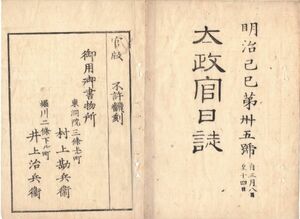 明治己巳第卅五號
自三月八日
至十四日
太政官日誌
官版 不許翻刻
御用御書物所
東洞院三條上ル町
村上勘兵衛
堀川二條下ル町
井上治兵衛